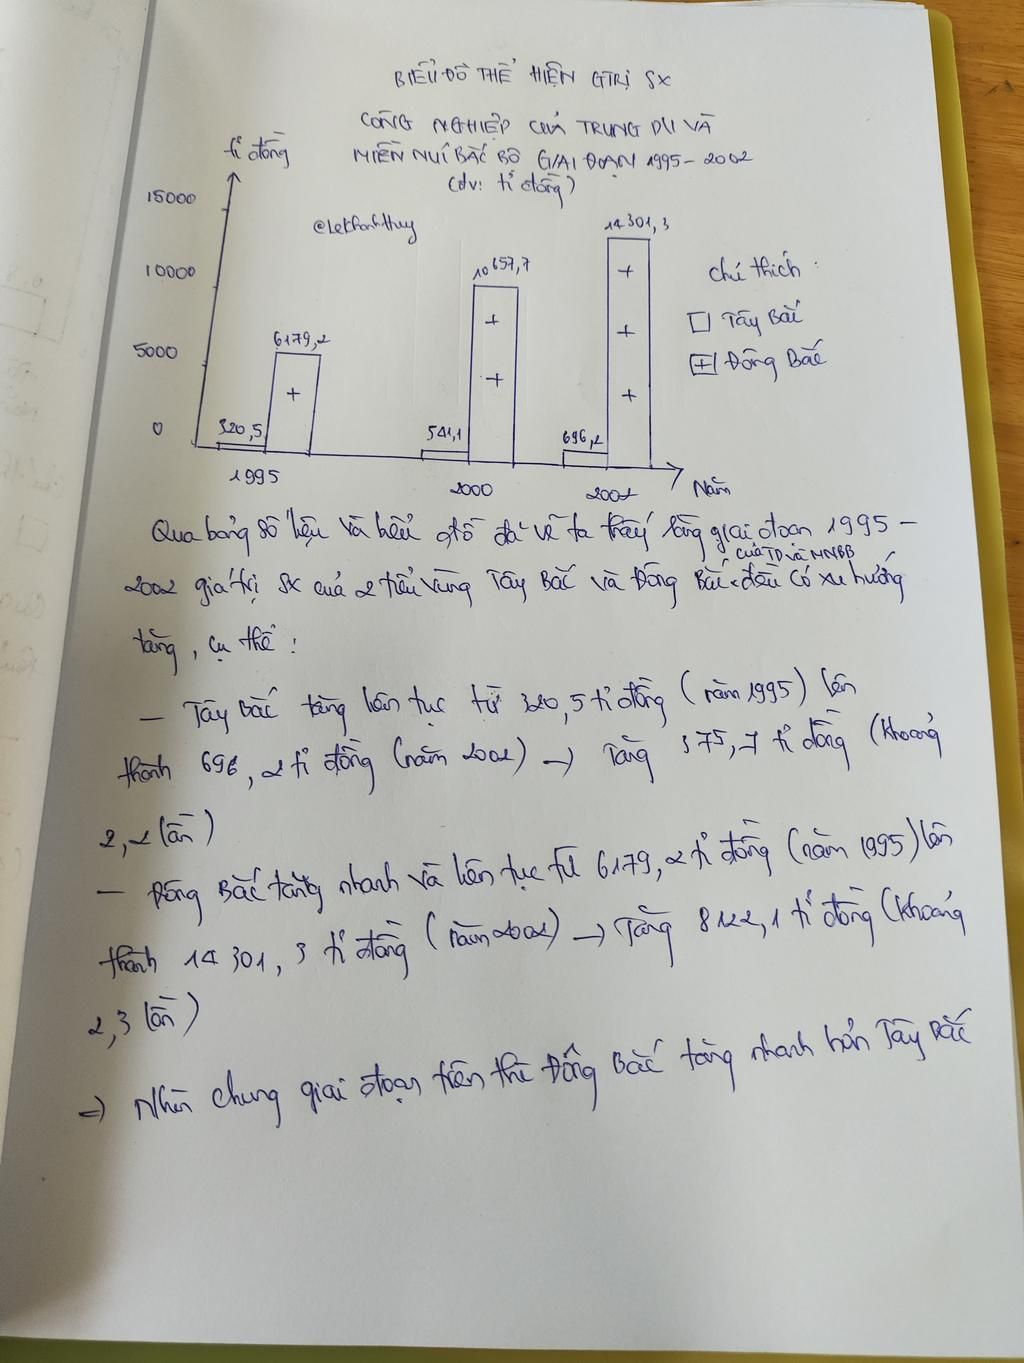 BIỂU ĐỒ THỂ HIỆN GTRỊ SX
CÔNG NGHIỆP CỦA TRUNG DU VÀ
MIỀN NÚI BẮC BỘ GIAI ĐOẠN 1995-2002
(đv: tỉ đồng)
tỉ đồng
15000
10000
5000
0
@Lekhanhthuy
320,5
6179,2
541,1
10657,7
696,2
14301,3
1995
2000
2002
Năm
Chú thích:
Tây Bắc
+ Đông Bắc
Qua bảng số liệu và biểu đồ đã vẽ ta thấy rằng giai đoạn 1995-
của TD và MNBB
2002 giá trị SX của 2 tiểu vùng Tây Bắc và Đông Bắc đều có xu hướng
tăng, cụ thể:
- Tây Bắc tăng liên tục từ 320,5 tỉ đồng (năm 1995) lên
thành 696,2 tỉ đồng (năm 2002) → Tăng 375,7 tỉ đồng (khoảng
2,2 lần)
- Đông Bắc tăng nhanh và liên tục từ 6179,2 tỉ đồng (năm 1995) lên
thành 14301,3 tỉ đồng (năm 2002) → Tăng 8122,1 tỉ đồng (khoảng
2,3 lần)
⇒ Nhìn chung giai đoạn trên thì Đông Bắc tăng nhanh hơn Tây Bắc